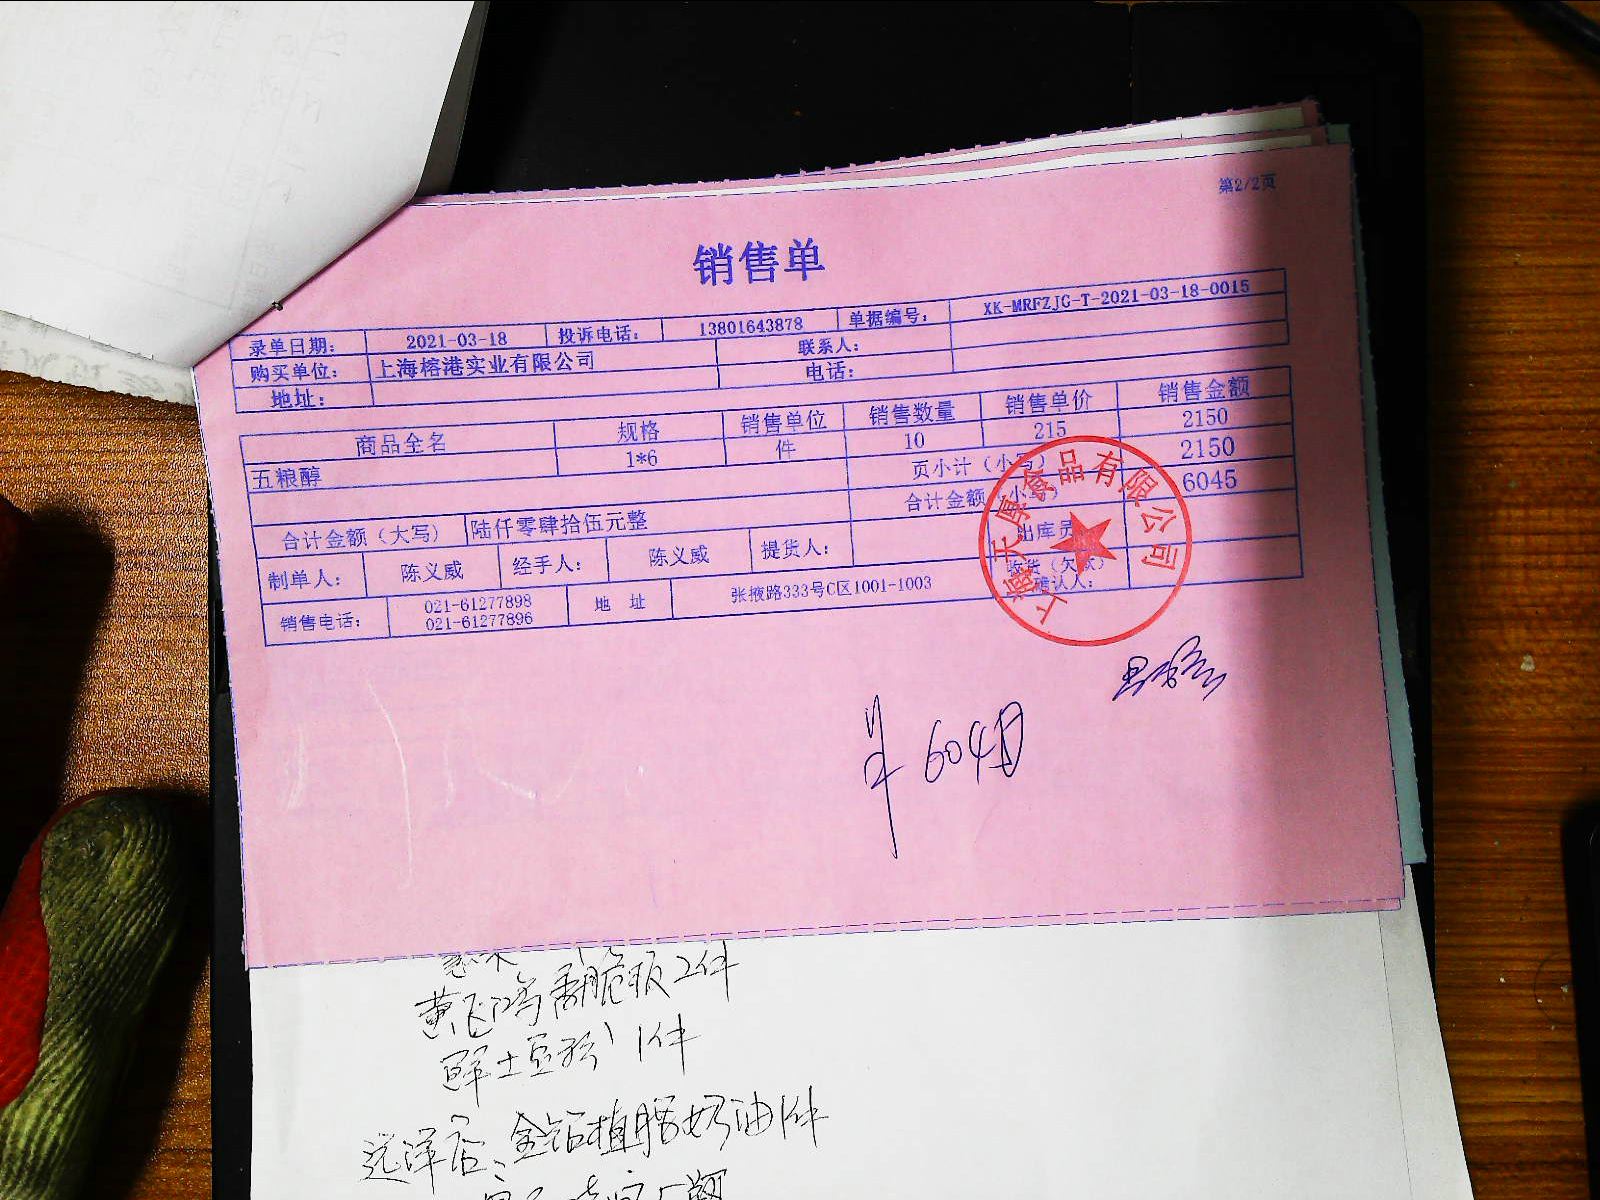 第2/2页
销售单
录单日期: 2021-03-18 投诉电话: 13801643878 单据编号: XK-MRFZJG-T-2021-03-18-0015
购买单位: 上海榕港实业有限公司 联系人:
地址: 电话:
商品全名 规格 销售单位 销售数量 销售单价 销售金额
五粮醇 1*6 件 10 215 2150
页小计（小写） 2150
合计金额（小写） 6045
合计金额（大写） 陆仟零肆拾伍元整
制单人: 陈义威 经手人: 陈义威 提货人: 出库员
销售电话: 021-61277898 021-61277896 地 址 张掖路333号C区1001-1003 收货（欠款）确认人:
上海天厚食品有限公司
黄飞鸿香脆椒2件
土豆粉 1件
远洋店、金钻植脂奶油1件